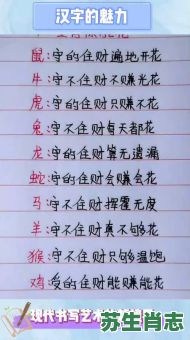 汉字的魅力
鼠:守的住财遍地开花
牛:守不住财不赚光花
虎:守的住财只赚不花
兔:守不住财有天都花
龙:守的住财算无遗漏
蛇:守的住财会赚会花
马:守不住财挥霍无度
羊:守不住财真不够花
猴:守不住财只够温饱
鸡:守的住财能赚能花
现代书写艺术
苏生肖志